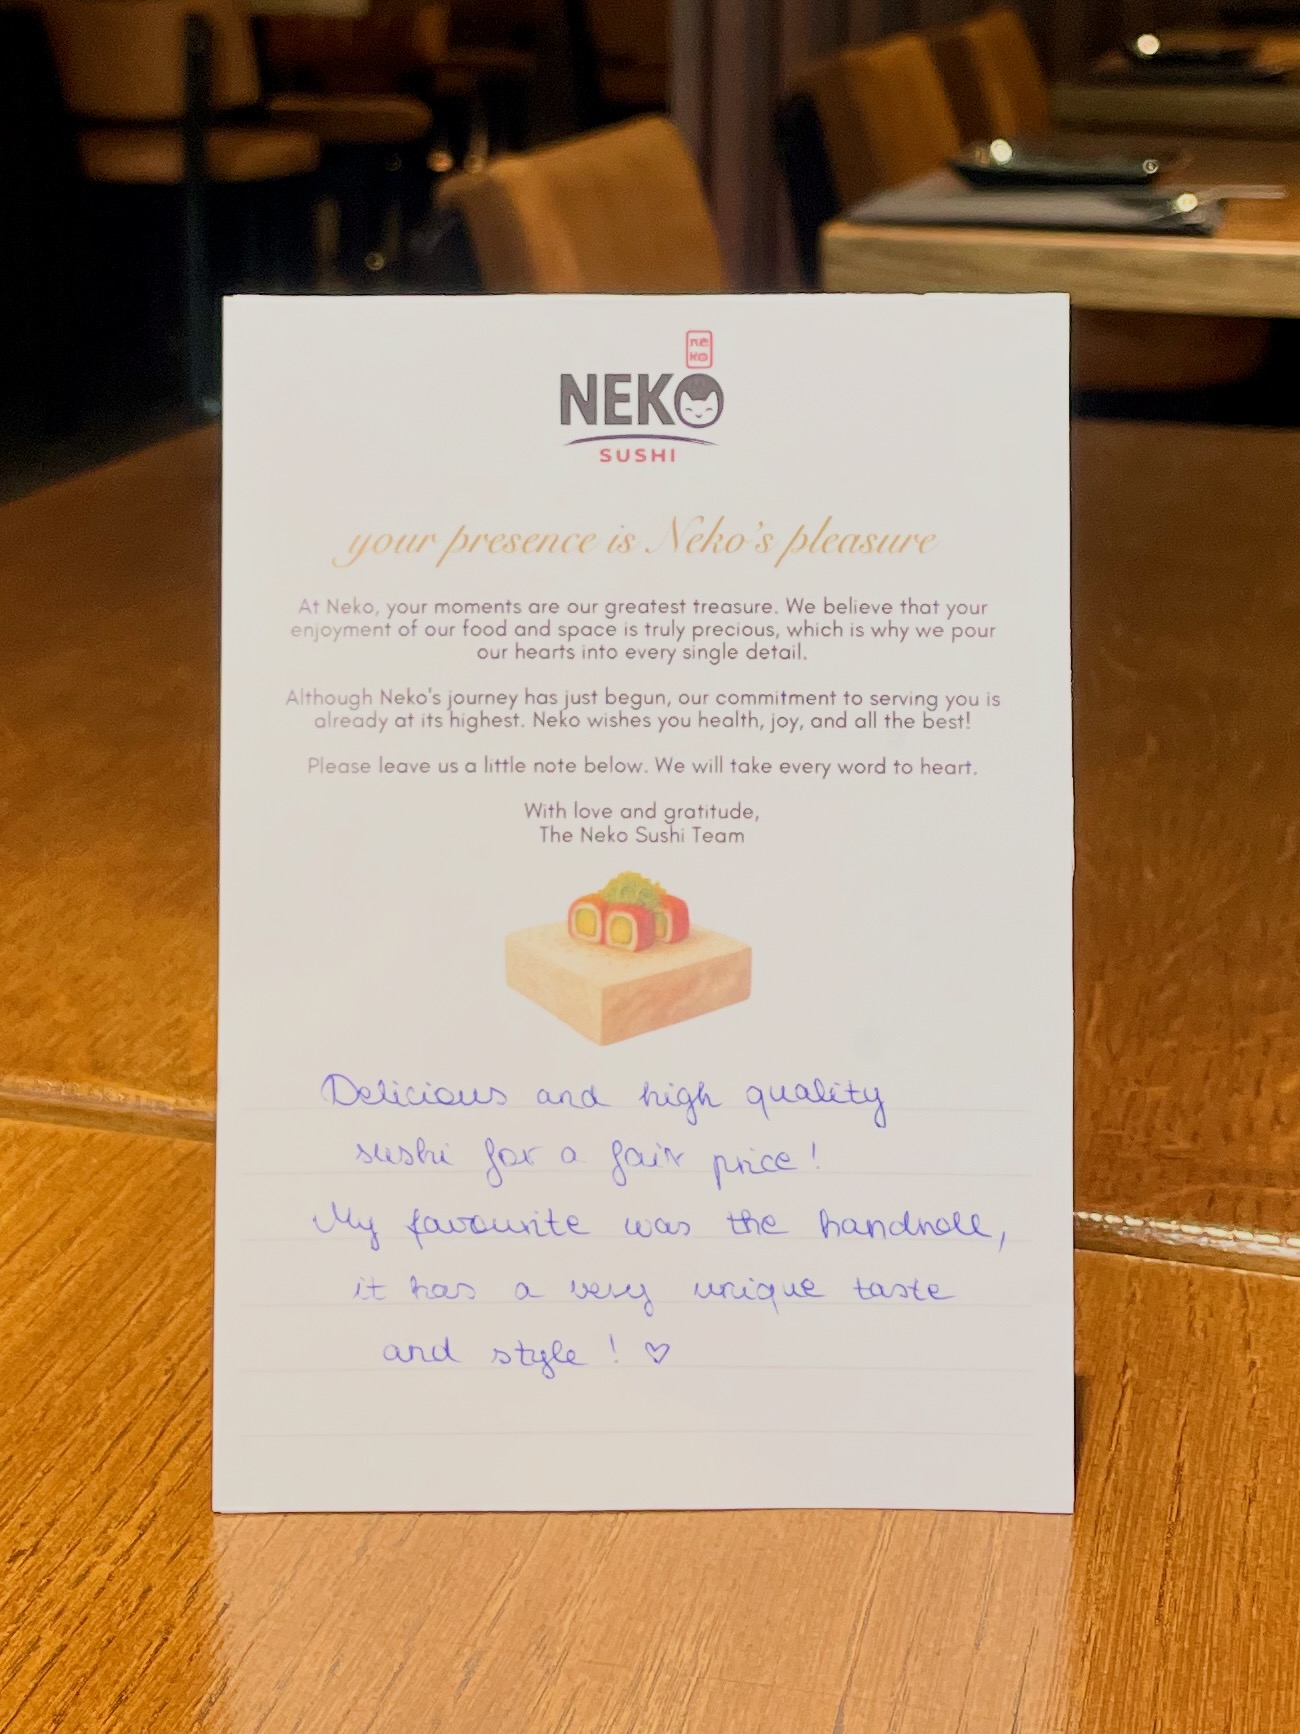 neko
NEKO
SUSHI
your presence is Neko's pleasure
At Neko, your moments are our greatest treasure. We believe that your
enjoyment of our food and space is truly precious, which is why we pour
our hearts into every single detail.
Although Neko's journey has just begun, our commitment to serving you is
already at its highest. Neko wishes you health, joy, and all the best!
Please leave us a little note below. We will take every word to heart.
With love and gratitude,
The Neko Sushi Team
Delicious and high quality
sushi for a fair price!
My favourite was the handroll,
it has a very unique taste
and style! ♡